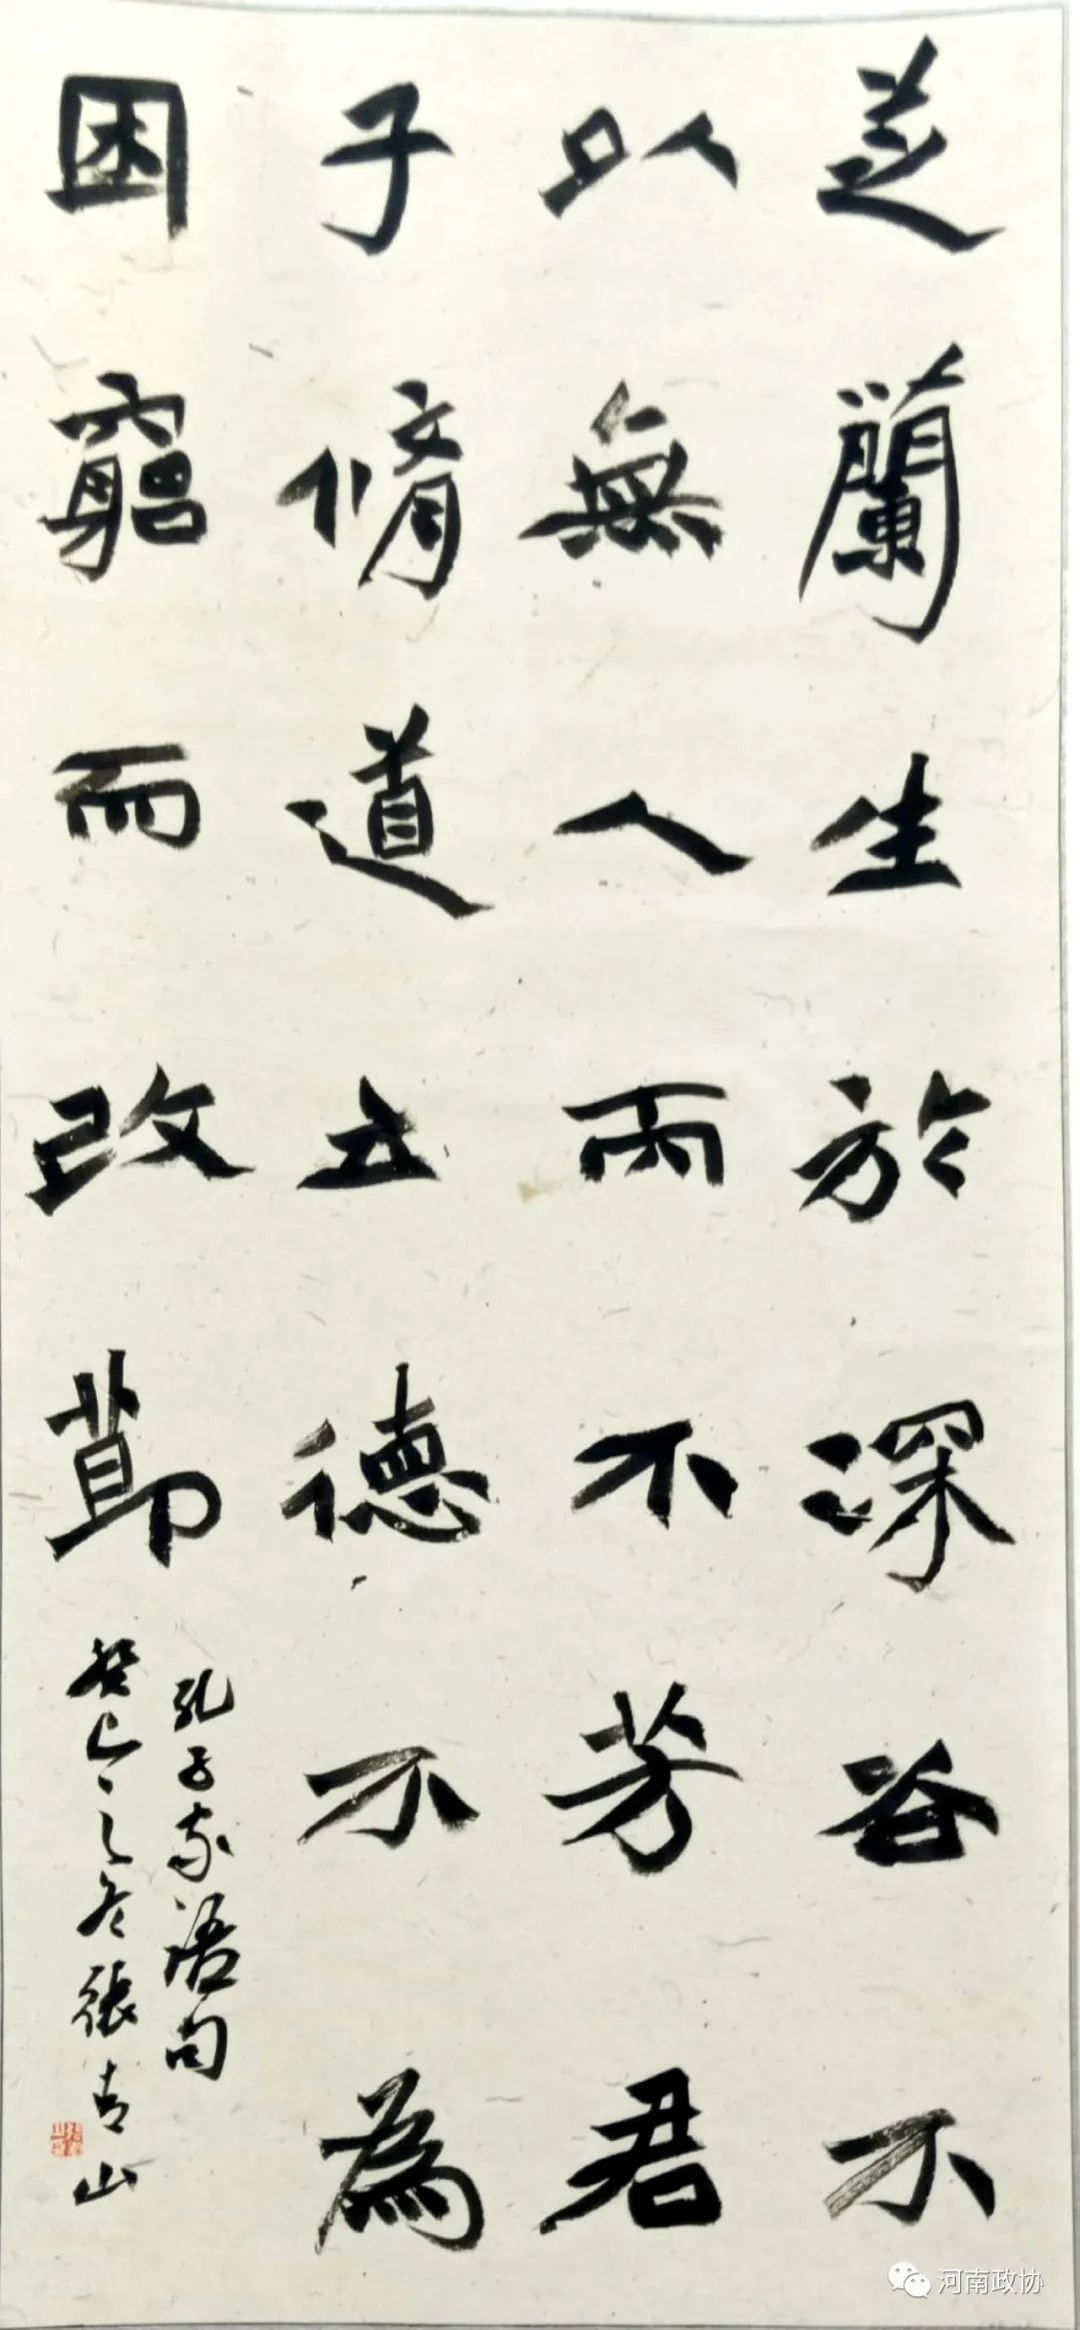 芝蘭生於深谷不
以無人而不芳君
子脩道立德不為
困窮而改節
孔子家语句
癸巳之冬張青山
河南政协